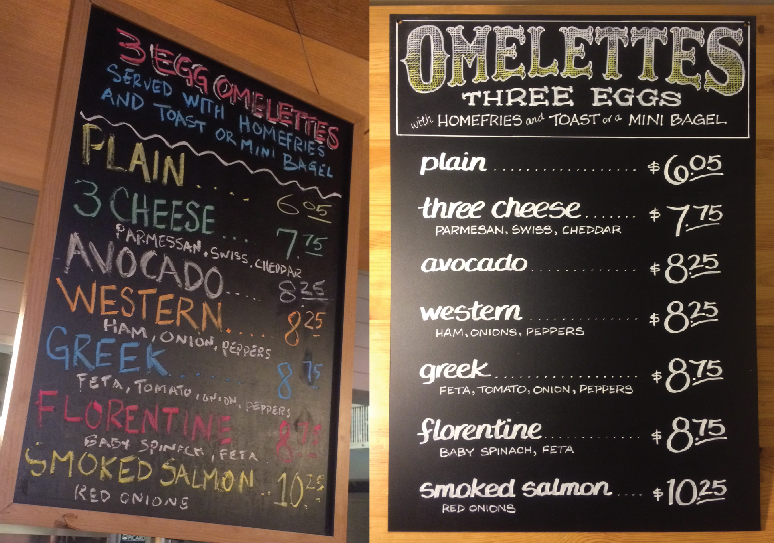 3 EGG OMELETTES
SERVED WITH HOMEFRIES
AND TOAST OR MINI BAGEL
PLAIN .... 6 05
3 CHEESE ... 7.75
PARMESSAN, SWISS, CHEDDAR
AVOCADO .... 8 25
WESTERN .... 8 25
HAM, ONION, PEPPERS
GREEK .... 8 75
FETA, TOMATO, ONION, PEPPERS
FLORENTINE 8 75
BABY SPINACH, FETA
SMOKED SALMON .. 10 25
RED ONIONS
OMELETTES
THREE EGGS
with HOMEFRIES and TOAST or a MINI BAGEL
plain .................. $6.05
three cheese ........ $7.75
PARMESAN, SWISS, CHEDDAR
avocado .............. $8.25
western .............. $8.25
HAM, ONIONS, PEPPERS
greek .................. $8.75
FETA, TOMATO, ONION, PEPPERS
florentine ............ $8.75
BABY SPINACH, FETA
smoked salmon .... $10.25
RED ONIONS